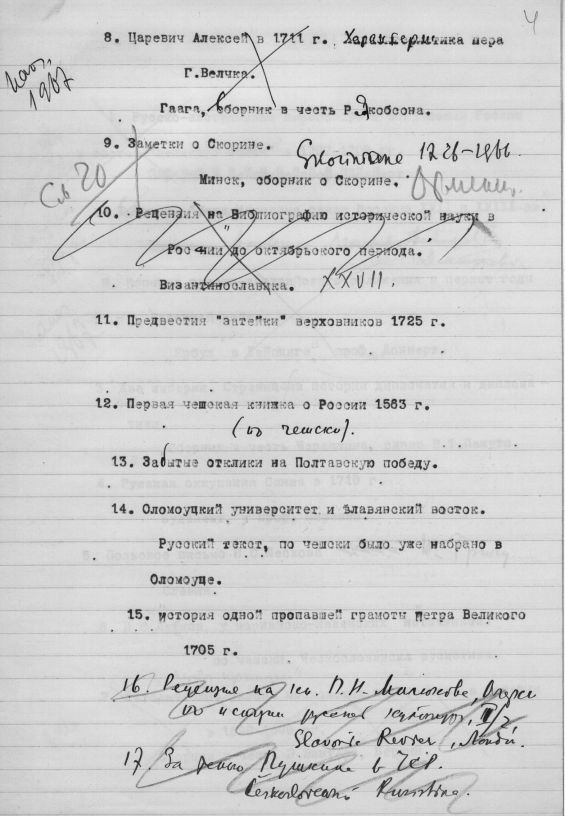 4
8. Царевич Алексей в 1711 г. Характеристика пера
Г.Велчка.
1967
Гаага, сборник в честь Р.Якобсона.
9. Заметки о Скорине.
1226-1966
Минск, сборник о Скорине.
20
10. Рецензия на Библиографию исторической науки в
России до октябрьского периода.
Византинославика. XXVII.
11. Предвестия "затейки" верховников 1725 г.
12. Первая чешская книжка о России 1563 г.
(по чешски).
13. Забытые отклики на Полтавскую победу.
14. Оломоуцкий университет и славянский восток.
Русский текст, по чешски было уже набрано в
Оломоуце.
15. история одной пропавшей грамоты петра Великого
1705 г.
16. Рецензия на кн. П.Н. Милюкова, Очерки
по истории русской культуры, II/2
Slavonic Review, Лонд.
17. За Пушкина в ЧСР.
Československá Rusistika.